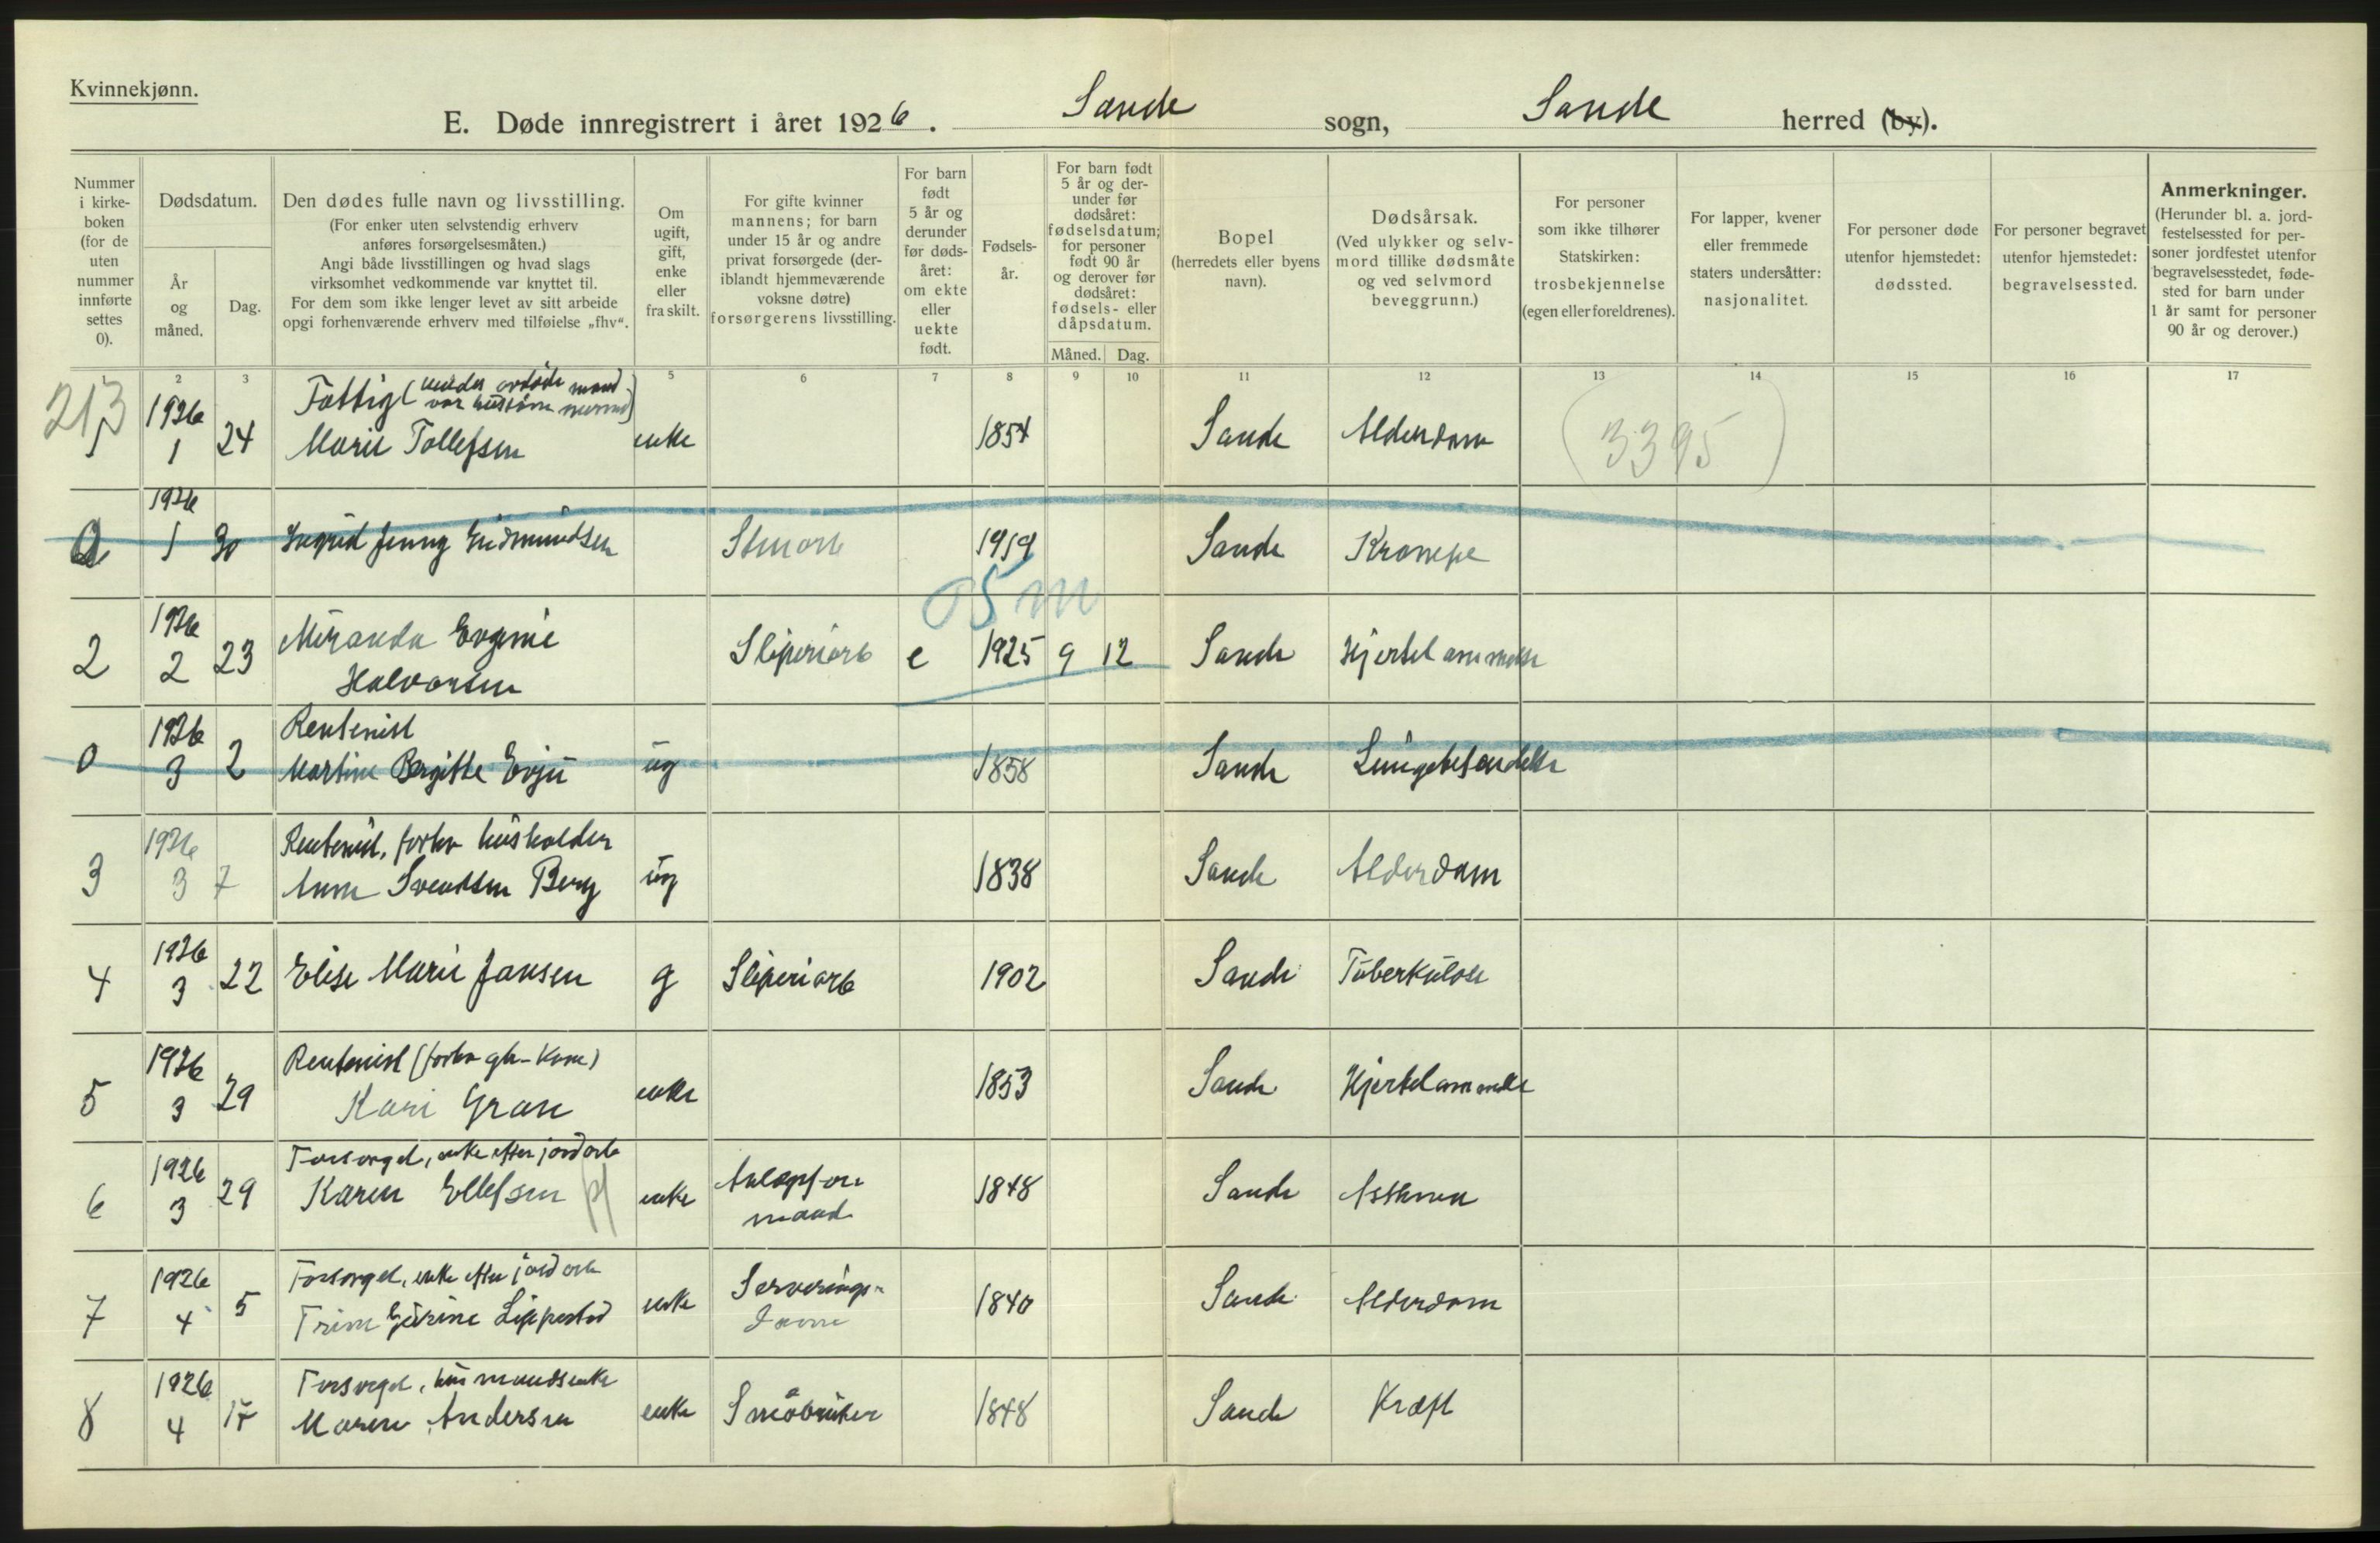 Kvinnekjønn.
E. Døde innregistrert i året 1926. Sande sogn, Sande herred (by).
Nummer i kirke- boken (for de uten nummer innførte settes 0).
Dødsdatum.
År og måned.
Dag.
Den dødes fulle navn og livsstilling.
(For enker uten selvstendig erhverv
anføres forsørgelsesmåten.)
Angi både livsstillingen og hvad slags
virksomhet vedkommende var knyttet til.
For dem som ikke lenger levet av sitt arbeide
opgi forhenværende erhverv med tilføielse „fhv“.
Om ugift, gift, enke eller fraskilt.
For gifte kvinner
mannens; for barn
under 15 år og andre
privat forsørgede (der-
iblandt hjemmeværende
voksne døtre)
forsørgerens livsstilling.
For barn født 5 år og derunder før døds- året: om ekte eller uekte født.
Fødsels- år.
For barn født
5 år og der-
under før
dødsåret:
fødselsdatum;
for personer
født 90 år
og derover før
dødsåret:
fødsels- eller
dåpsdatum.
Måned. Dag.
Bopel
(herredets eller byens
navn).
Dødsårsak.
(Ved ulykker og selv-
mord tillike dødsmåte
og ved selvmord
beveggrunn.)
For personer
som ikke tilhører
Statskirken:
trosbekjennelse
(egen eller foreldrenes).
For lapper, kvener
eller fremmede
staters undersåtter:
nasjonalitet.
For personer døde
utenfor hjemstedet:
dødssted.
For personer begravet
utenfor hjemstedet:
begravelsessted.
Anmerkninger.
(Herunder bl. a. jord-
festelsessted for per-
soner jordfestet utenfor
begravelsesstedet, føde-
sted for barn under
1 år samt for personer
90 år og derover.)
1 2 3 5 6 7 8 9 10 11 12 13 14 15 16 17
213
Fattig
1 1926 1 24 Marie Tollefsen enke 1854 Sande Alderdom (3395)
0 1926 1 30 Ingrid Jenny Gudmundsen 1919 Sande Krampe
05 m
2 1926 2 23 Miranda Evgenie
Halvorsen Sliperiarb e 1925 9 12 Sande Hjertelammelse
Rentenist
0 1926 3 2 Martine Bergitte Evju ug 1858 Sande Lungebetendelse
Rentenist, forhv husholder
3 1926 3 7 Anne Svendsen Berg ug 1838 Sande Alderdom
4 1926 3 22 Elise Marie Jansen g Sliperiarb 1902 Sande Tuberkulose
Rentenist
5 1926 3 29 Kari Gran enke 1853 Sande Hjertelammelse
Forsørget, enke efter jordarb
6 1926 3 29 Karen Ellefsen enke mand 1848 Sande Asthma
Forsørget, enke efter jordarb
7 1926 4 5 Lippestad enke Serverings-
dame 1840 Sande Alderdom
Forsørget, husmandsenke
8 1926 4 17 Maren Andersen enke Småbruker 1848 Sande Kræft